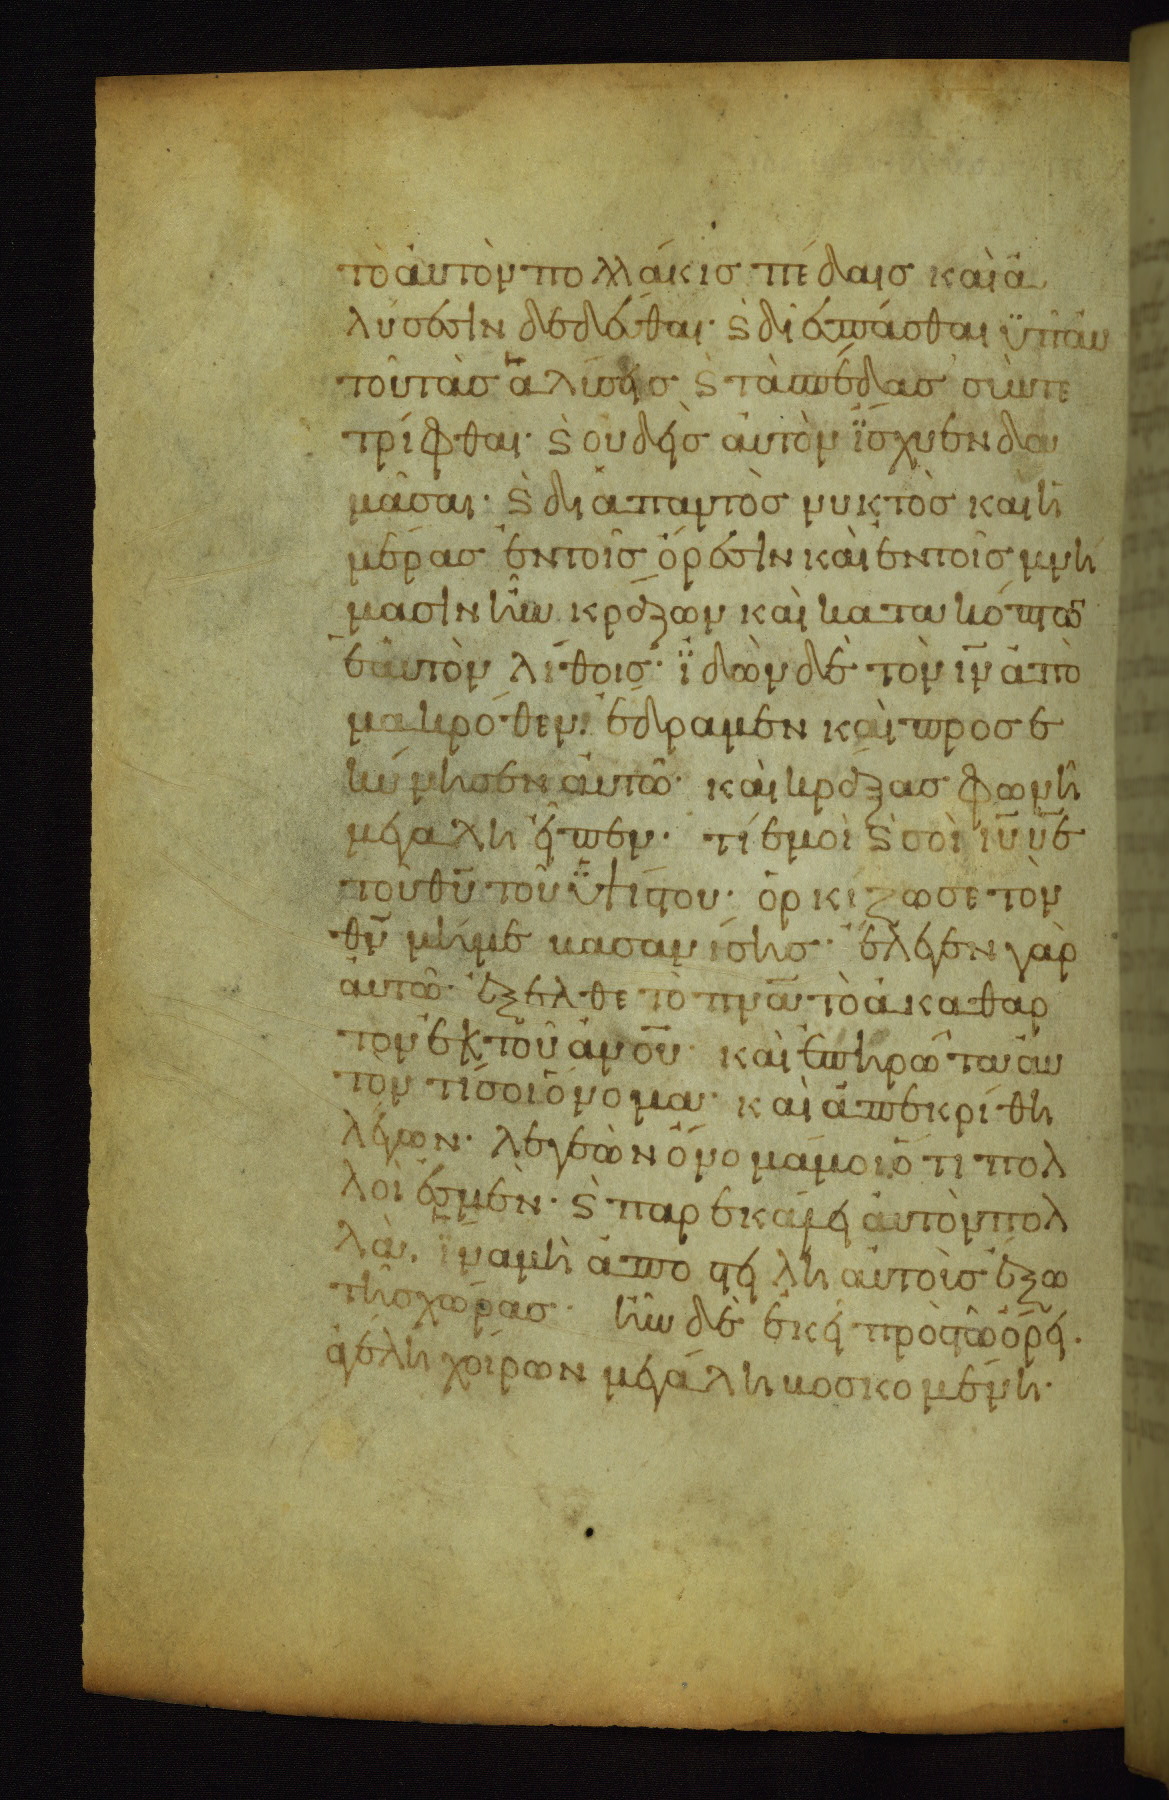 τὸ ἀυτὸν πολλάκις πέδαις καὶ ἁ
λύσεσιν δεδέσθαι· ϗ διεσπάσθαι ὑπ' ἀυ
τοῦ τὰς ἁλύσεις ϗ τὰς πέδας συντε
τρίφθαι· ϗ ουδεὶς ἀυτὸν ΐσχυεν δα
μᾶσαι· ϗ διαπαντὸς νυκτὸς και ἡ
μέρας ἐν τοῖς ὄρεσιν καὶ ἐν τοῖς μνή
μασιν ἦν κράζων καὶ κατακόπτων
ἑαυτὸν λίθοις· ϊδὼν δὲ τὸν ιν ἀπὸ
μακρόθεν· ἔδραμεν καὶ προσε
κύνησεν ἀυτῶ· καὶ κράξας φωνῆ
μεγάλη εἶπεν· τί ἐμοὶ ϗ σοὶ ιυ υε
τοῦ θυ τοῦ ὑψίστου· ὁρκίζω σε τὸν
θν μή με βασανίσης· ἔλεγεν γὰρ
ἀυτῶ· ἔξελθε τὸ πνα τὸ ἀκάθαρ
τον ἐκ τοῦ ἀνου καὶ ἐπηρῶτα ἀυ
τον τί σοι ὄνομα· καὶ ἀπεκρίθη
λέγων· λεγεὼν ὄνομά μοι ὅτι πολ
λοί ἐσμεν· ϗ παρεκάλει ἀυτὸν πολ
λὰ, ΐνα μὴ ἀποστείλη ἀυτοὶς ἔξω
τῆς χώρας· ἦν δὲ ἐκεῖ πρὸς τῶ ὄρει·
ἀγέλη χοίρων μεγάλη βοσκομένη·